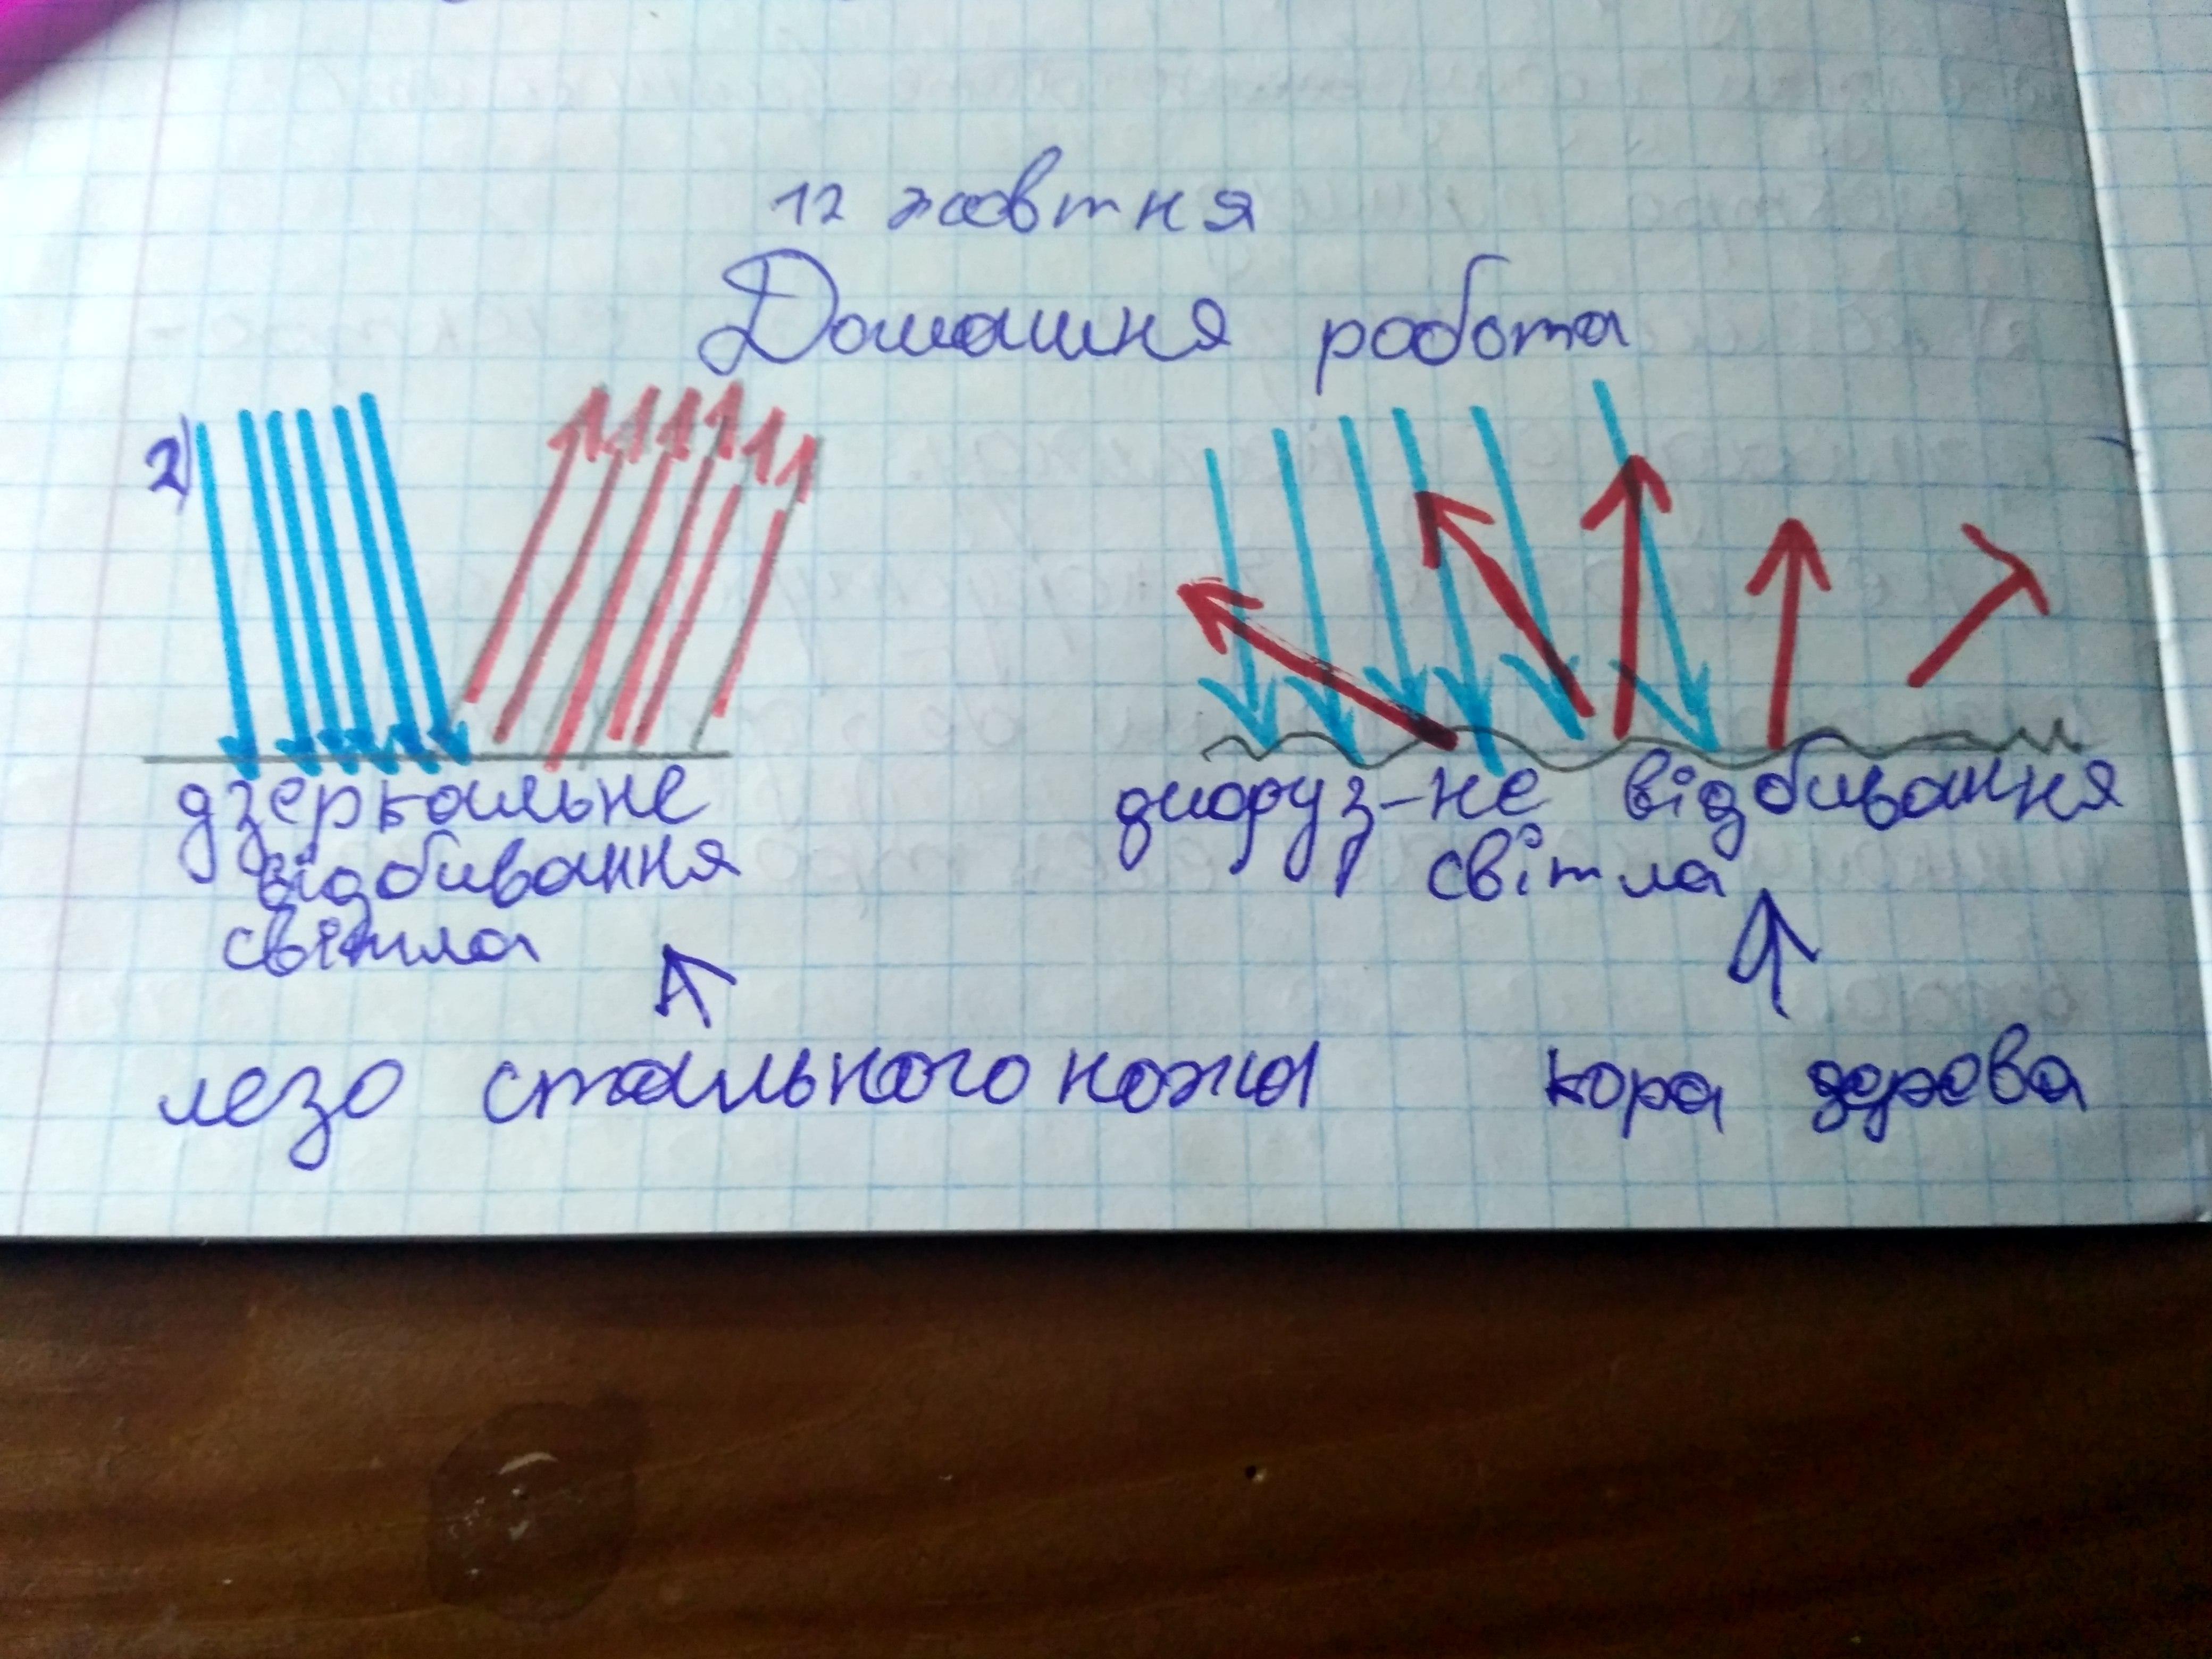 12 жовтня
Домашня робота
2)
дзеркальне
відбивання
світла
дифуз-не відбивання
світла
лезо стального ножа
кора дерева